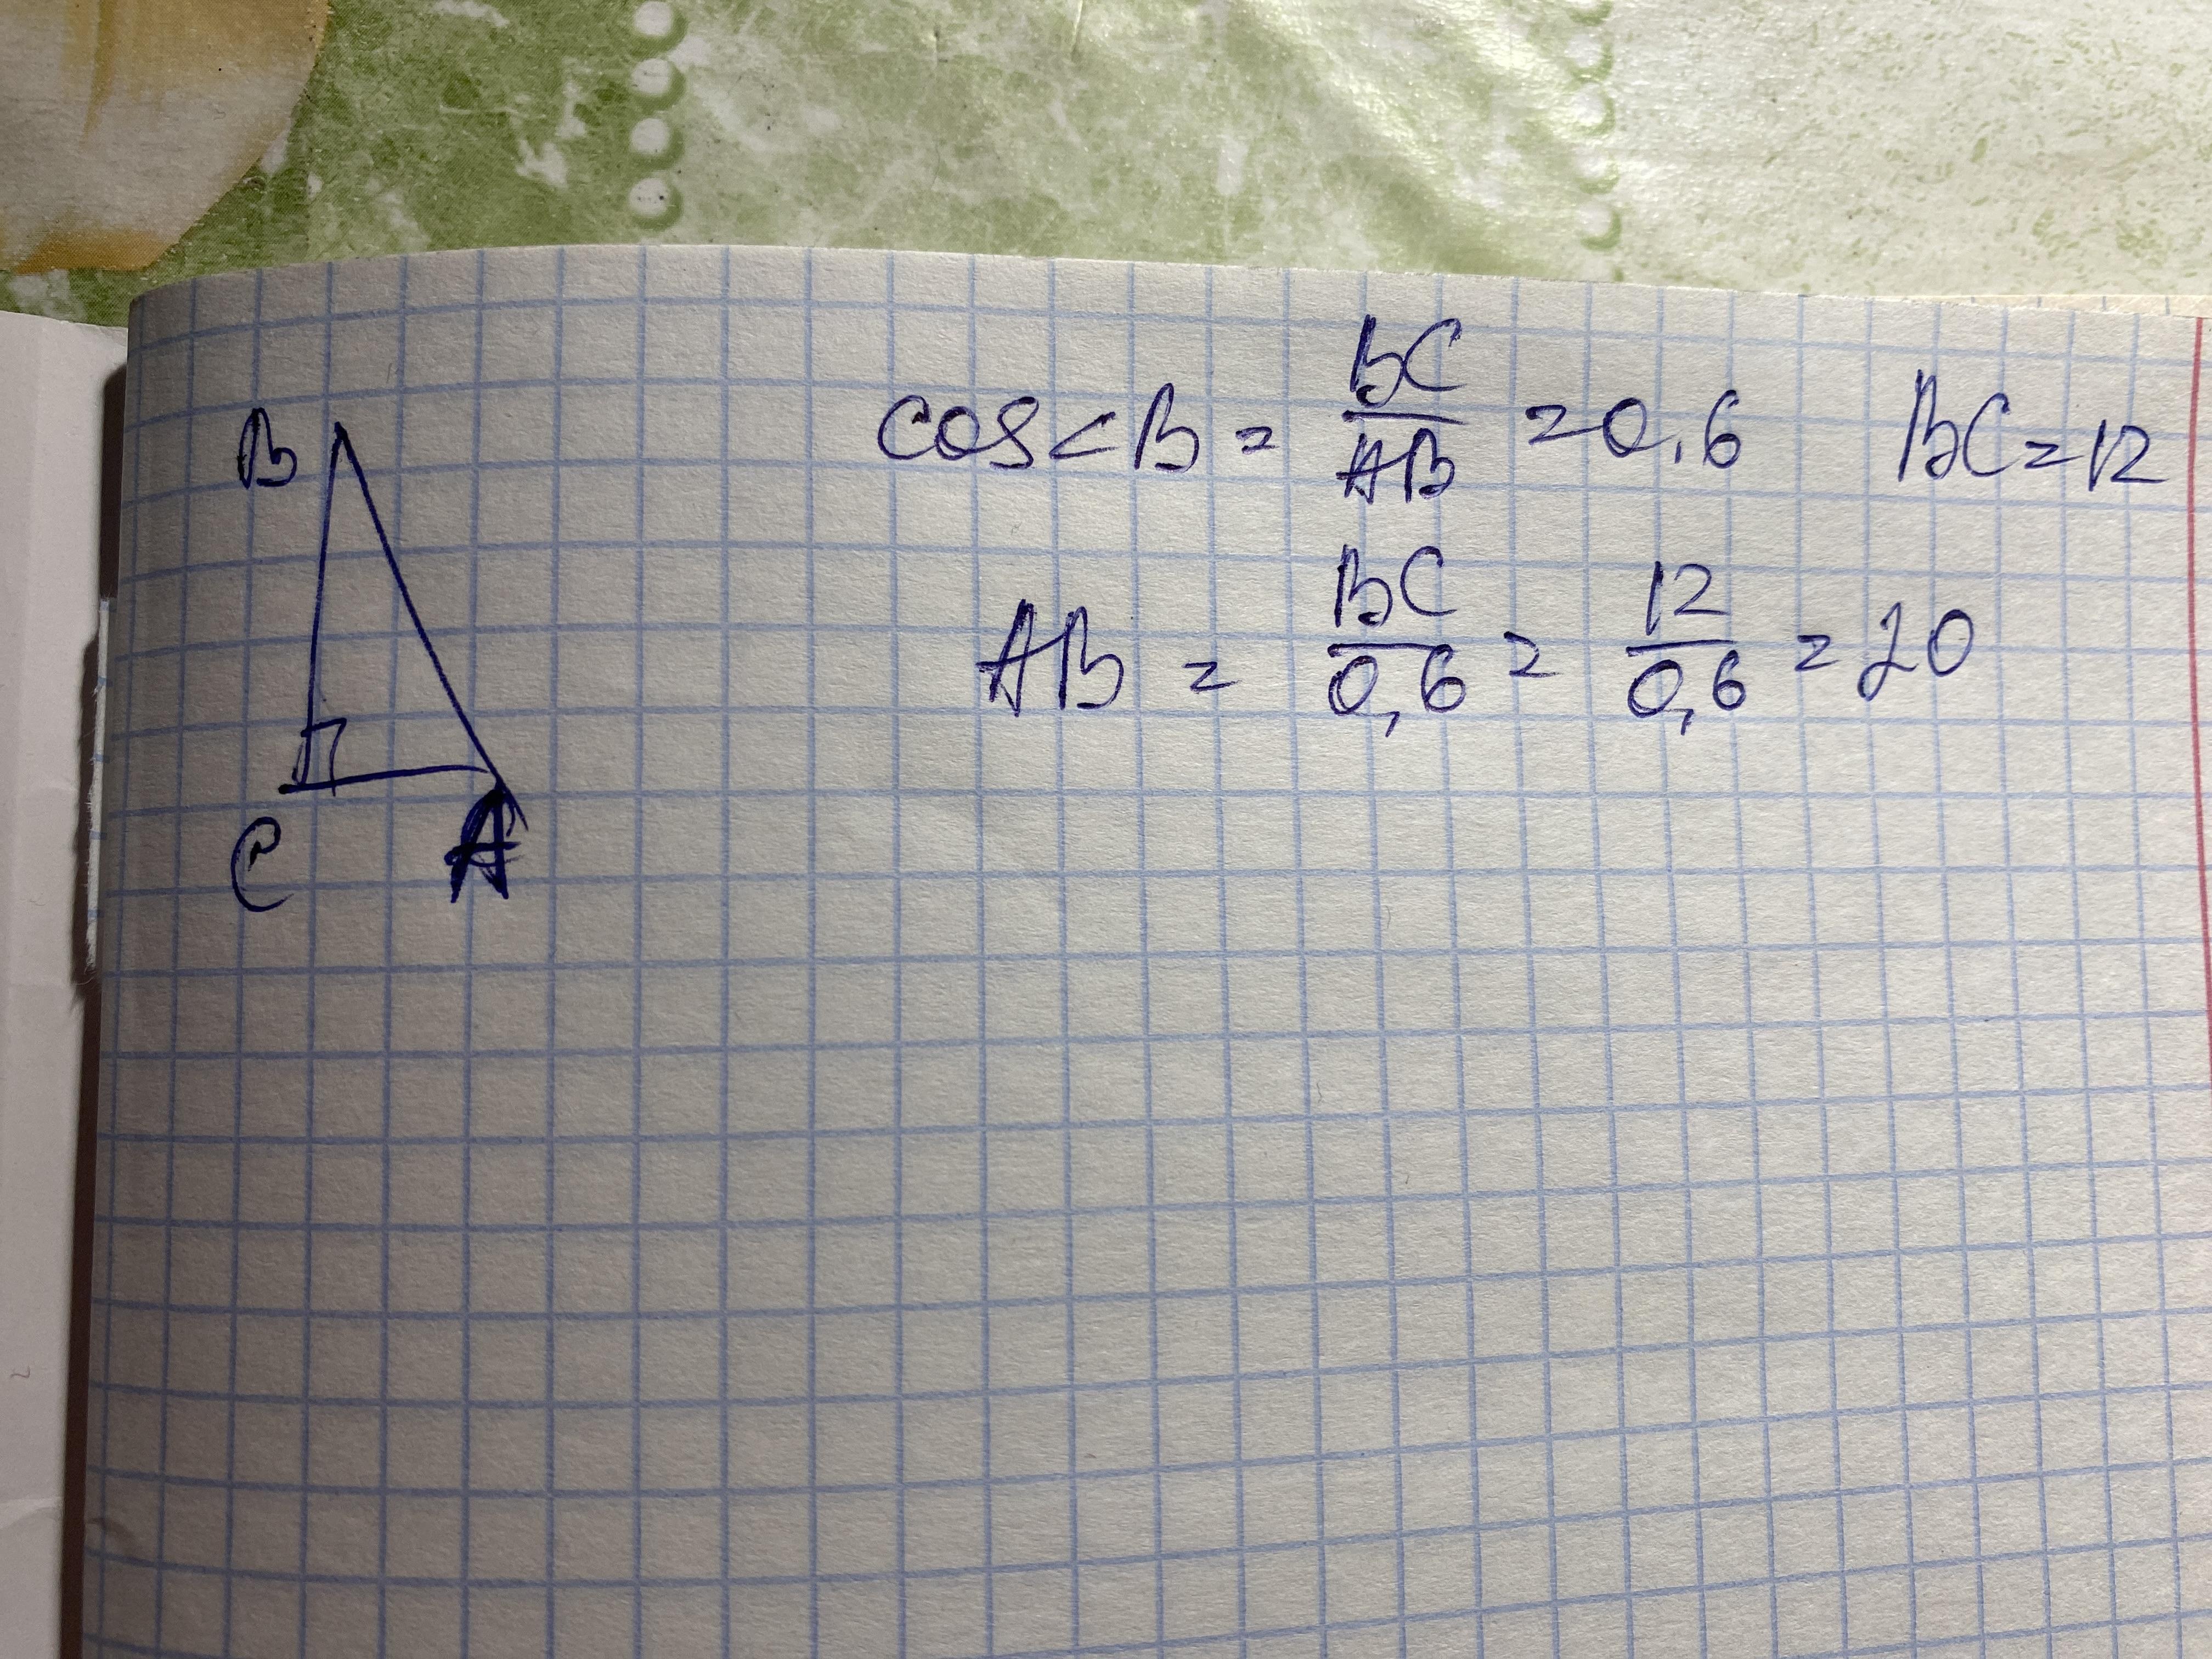 B
C
A
cos<B = BC/AB = 0.6 BC = 12
AB = BC/0,6 = 12/0,6 = 20